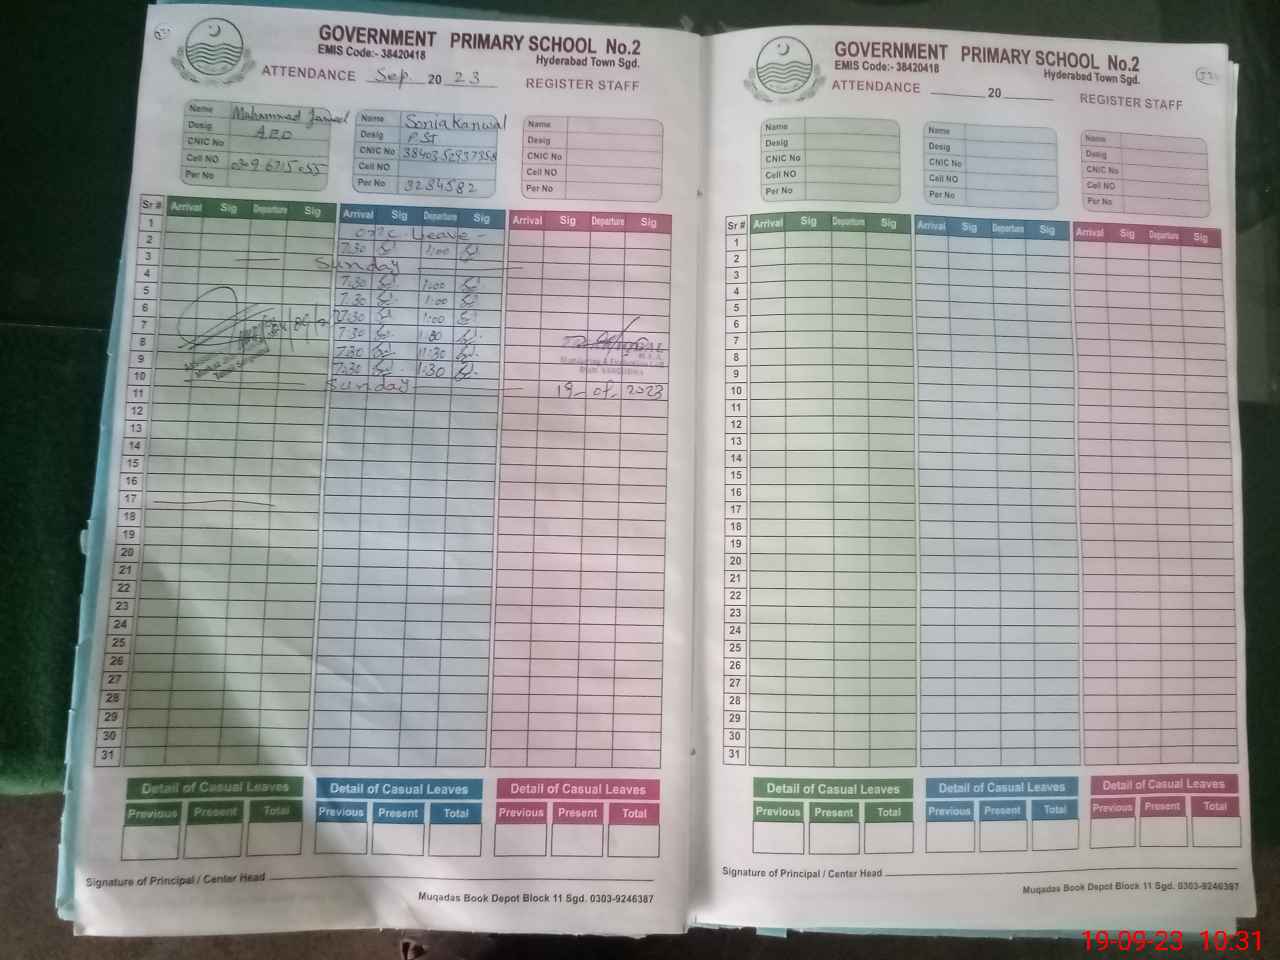 GOVERNMENT PRIMARY SCHOOL No.2
EMIS Code:- 38420418
Hyderabad Town Sgd.
ATTENDANCE Sep. 20 23 REGISTER STAFF
Name Muhammad Jameel
Desig AEO
CNIC No
Cell NO
Per No
Name Sonia Kanwal
Desig PST
CNIC No
Cell NO
Per No 3234582
Name
Desig
CNIC No
Cell NO
Per No
Sr # Arrival Sig Departure Sig Arrival Sig Departure Sig Arrival Sig Departure Sig
1 Leave -
2 7:30 1:00
3 Sunday
4 7:30 1:00
5 7:30 1:00
6 7:30 1:00
7 7:30 1:30
8 7:30 11:30
9 7:30 1:30
10 Sunday
11 2023
12
13
14
15
16
17
18
19
20
21
22
23
24
25
26
27
28
29
30
31
Detail of Casual Leaves Detail of Casual Leaves Detail of Casual Leaves
Previous Present Total Previous Present Total Previous Present Total
Signature of Principal / Center Head
Muqadas Book Depot Block 11 Sgd. 0303-9246387
GOVERNMENT PRIMARY SCHOOL No.2
EMIS Code:- 38420418
Hyderabad Town Sgd.
ATTENDANCE 20 REGISTER STAFF
Name
Desig
CNIC No
Cell NO
Per No
Name
Desig
CNIC No
Cell NO
Per No
Name
Desig
CNIC No
Cell NO
Per No
Sr # Arrival Sig Departure Sig Arrival Sig Departure Sig Arrival Sig Departure Sig
1
2
3
4
5
6
7
8
9
10
11
12
13
14
15
16
17
18
19
20
21
22
23
24
25
26
27
28
29
30
31
Detail of Casual Leaves Detail of Casual Leaves Detail of Casual Leaves
Previous Present Total Previous Present Total Previous Present Total
Signature of Principal / Center Head
Muqadas Book Depot Block 11 Sgd. 0303-9246387
19-09-23 10:31